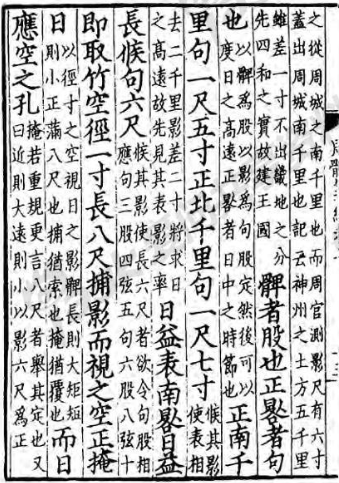 之從周城之南千里也而周官測影尺有六寸
蓋出周城南千里也記云神州之土方五千里
雖差一寸不出畿地之分
先四和之實故建王國
髀者股也正晷者句
也
以髀為股以影為句股定然後可以
度日之高遠正晷者日中之時節也
正南千
里句一尺五寸正北千里句一尺七寸
候其影
使表相
去二千里影差二寸將求日
之高遠故先見其表影之率
日益表南晷日益
長候句六尺
候其影使長六尺者欲令句股相
應句三股四弦五句六股八弦十
即取竹空徑一寸長八尺捕影而視之空正掩
日
以徑寸之空視日之影髀長則大矩短
則小正滿八尺也捕猶索也掩猶覆也
而日
應空之孔
掩若重規更言八尺者舉其定也又
曰近則大遠則小以影六尺為正